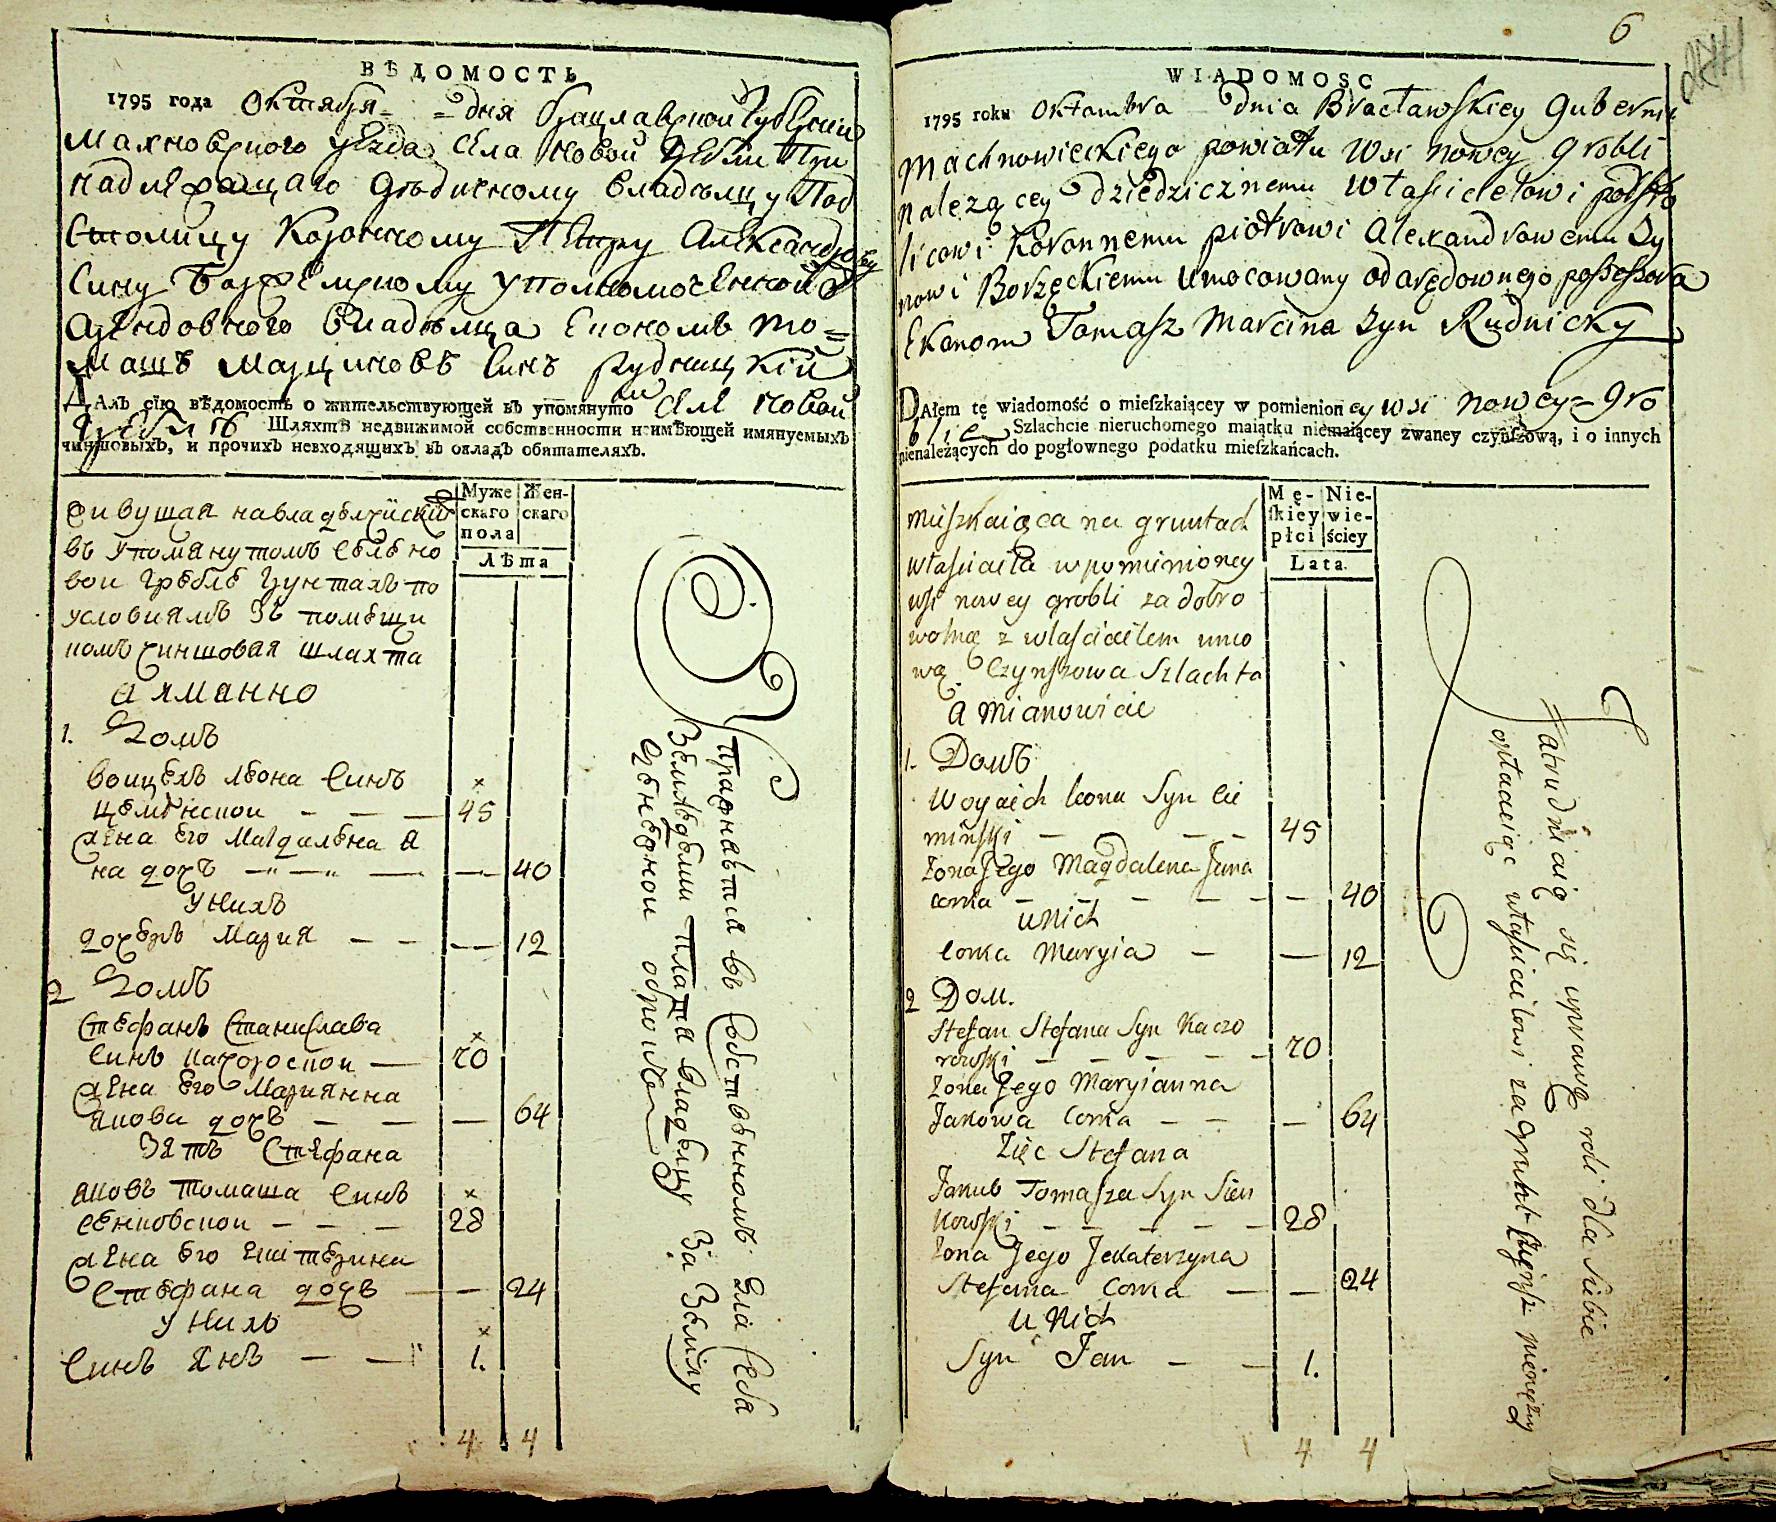 ВѢДОМОСТЬ
1795 года Октября = = дня Брацлавской Губернии
Махновского уезда села Новой Гребли При
надлежащаго дѣдичному владѣлцу Под
столицу Коронному Петру Александрову
сину Боржемскому уполномоченной
арендовного владѣлца Економъ То=
машъ Марциновъ синъ Рудницкій
Далъ сїю вѣдомость о жительствующей въ упомянуто й селе Новой
Гребли Шляхтѣ недвижимой собственности неимѣющей имянуемыхъ
чиншовыхъ, и прочихъ невходящихъ въ окладъ обитателяхъ.
Муже скаго пола
Женскаго
Лѣта
живущая на владелческихъ
въ упомянутомъ селе но
вои гребле грунтахъ по
условиямъ зъ помещи
комъ чиншовая шляхта
а имянно
1. Домъ
Воицехъ Леона синъ
Цеменскои — — — 45
жена его Магдалена Я
на дочъ — — — — 40
у нихъ
дочеръ Мария — — — 12
2 Домъ
Стефанъ Станислава
синъ Качороскои — 70
жена его Марианна
Якова дочъ — — — 64
Зять Стефана
Яковъ Томаша синъ
Сенковскои — — — 28
жена его Екатерина
Стефана дочъ — — 24
у нихъ
синъ Янъ — — 1.
4 4
земледелии платя владелцу за землю
денежной
6
WIADOMOSC
1795 roku Oktambra dnia Bracławskiey Guberni
Machnowieckiego powiatu wsi Nowey Grobli
należącey dziedzicznemu właścicielowi podsto
licowi koronnemu Piotrowi Alexandrowemu Sy
nowi Borzęckiemu umocowany od arędownego possessora
Ekonom Tomasz Marcina syn Rudnicky
DAłem tę wiadomość o mieszkaiącey w pomienion ey wsi Nowey= Gro
bli e Szlachcie nieruchomego maiątku niemaiącey zwaney czynszową, i o innych
nienależących do pogłownego podatku mieszkańcach.
Mę- skiey płci
Nie- wie- ściey
Lata
Mieszkaiąca na gruntach
właściciela w pomienioney
wsi nowey grobli za dobro
wolną z właścicielem umo
wą Czynszowa Szlachta
a Mianowicie
1. Домъ
Woyciech Leona Syn Cie
miński — — — 45
Zona Jego Magdalena Jana
corka — — — — — — 40
u Nich
Corka Maryia — — 12
2 Дом.
Stefan Stefana Syn Kaczo
rowski — — — — — 70
Zona Jego Maryianna
Jakowa Corka — — — 64
Zięc Stefana
Jakub Tomasza Syn Sien
kowski — — — — — 28
Zona Jego Jekaterzyna
Stefana Corka — — 24
u Nich
Syn Jan — — 1.
4 4
Zatrudniaią się uprawą roli dla siebie
opłacaiąc właścicielowi za grunt czynsz pieniężny